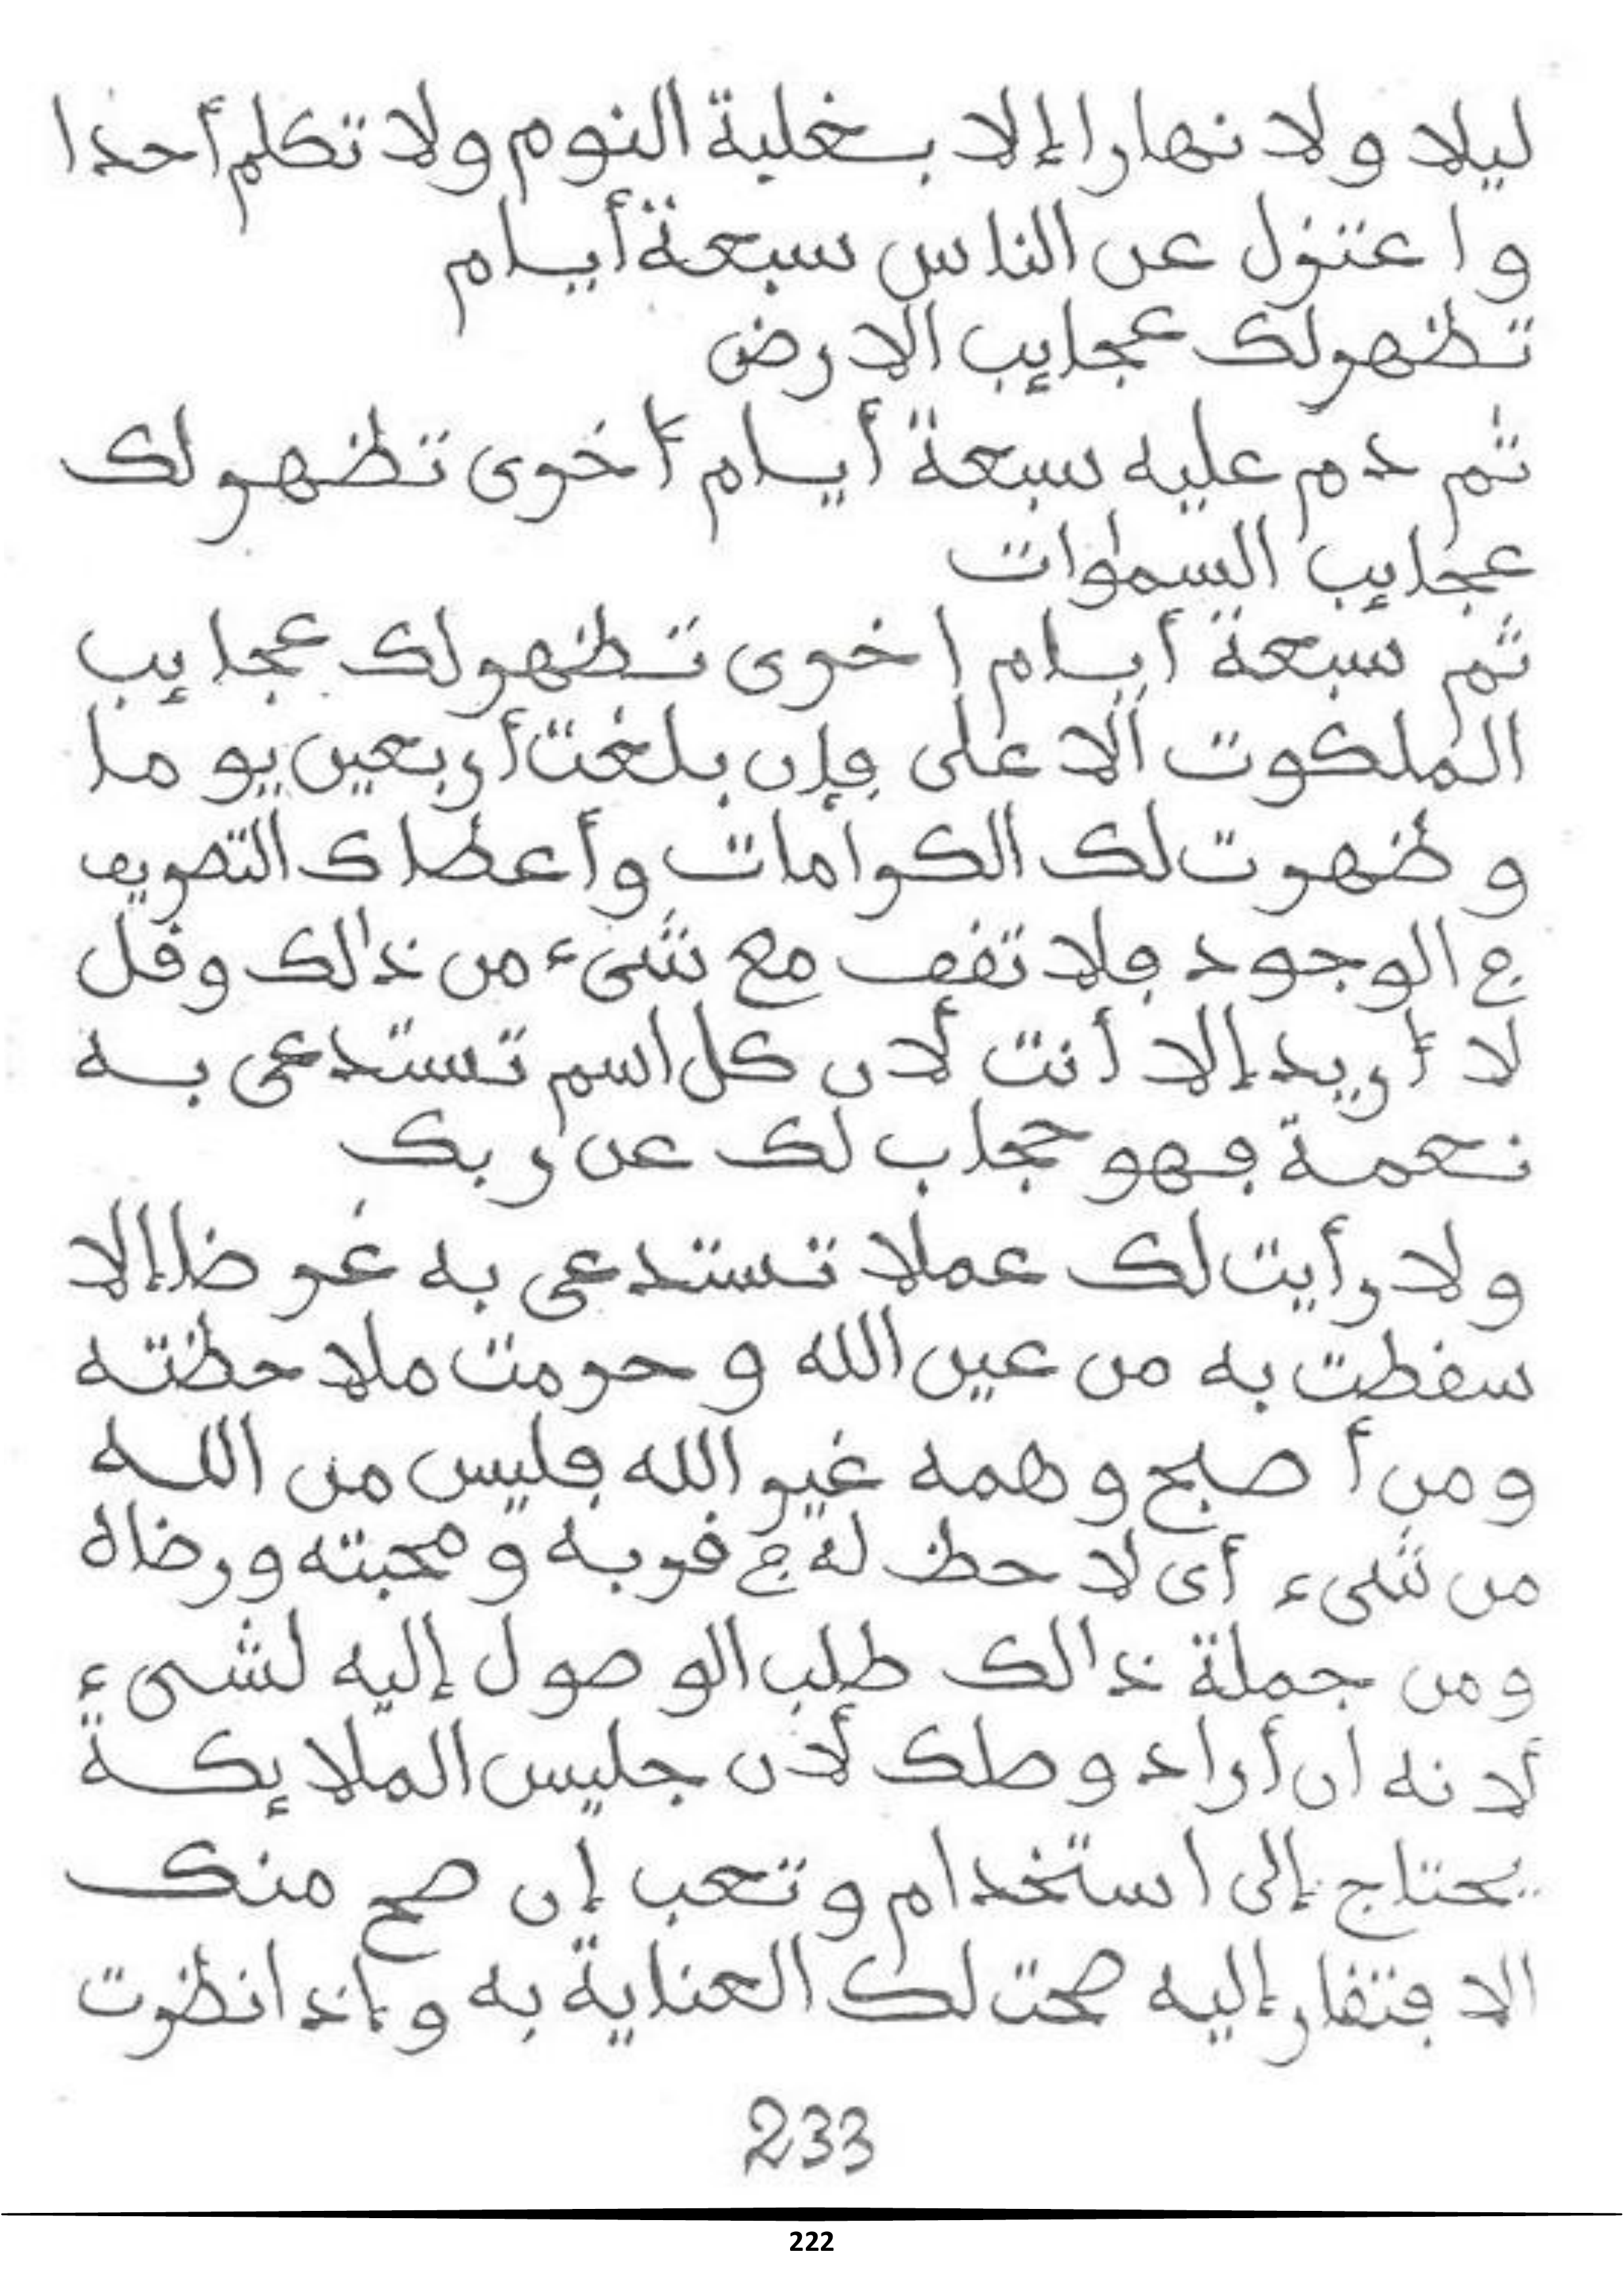 ليلا ولا نهارا إلا بغلبة النوم ولا تكلم أحدا
واعتزل عن الناس سبعة أيام
تظهر لك عجايب الارض
ثم دم عليه سبعة أيام أخرى تظهر لك
عجايب السموات
ثم سبعة أيام اخرى تظهر لك عجايب
الملكوت الاعلى فإن بلغت أربعين يوما
وظهرت لك الكرامات وأعطاك التصريف
في الوجود فلا تقف مع شىء من ذالك وقل
لا أريد إلا أنت لأن كل اسم تستدعى به
نعمة فهو حجاب لك عن ربك
ولا رأيت لك عملا تستدعى به غرضا إلا
سقطت به من عين الله وحرمت ملاحظته
ومن أصبح وهمه غير الله فليس من الله
من شىء أى لا حظ له في قربه ومحبته ورضاه
ومن جملة ذالك طلب الوصول إليه لشىء
لأنه ان أراد وصلك لأن جليس الملايكة
يحتاج إلى استخدام وتعب إن صح منك
الافتقار إليه صحت لك العناية به وإذا نظرت
233
222